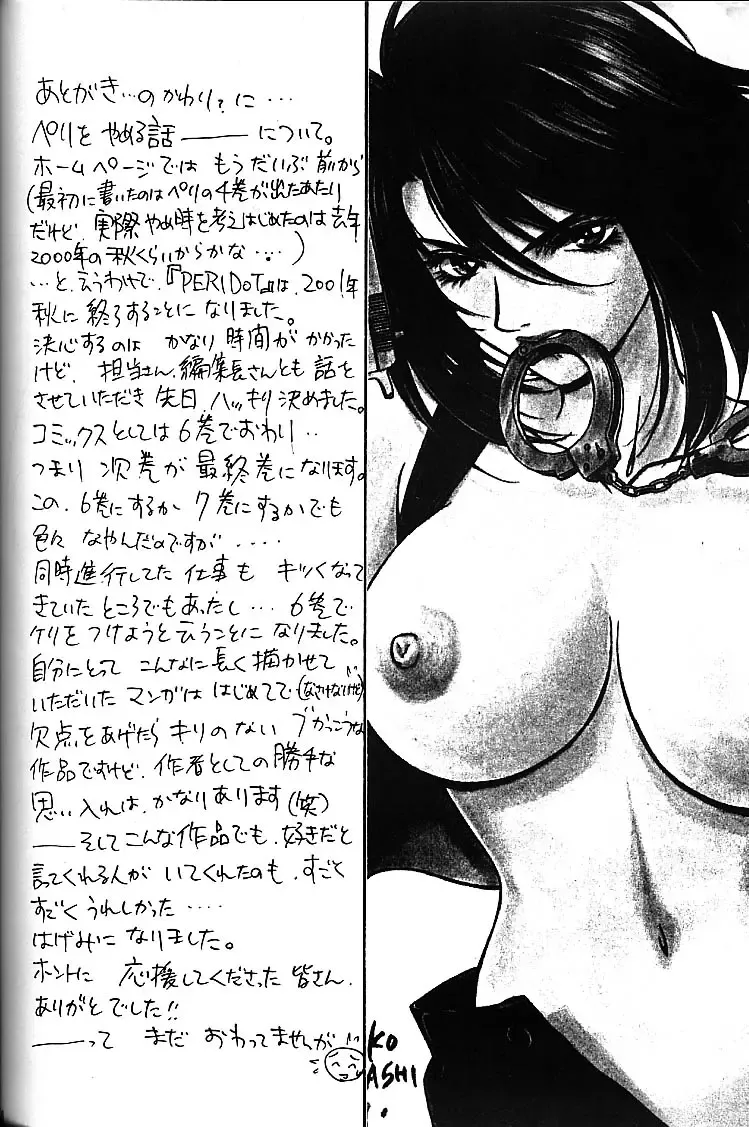 あとがき…のかわり?に…
ペリを やめる話 ―― について。
ホームページでは もうだいぶ前から
(最初に書いたのはペリの4巻が出たあたり
だけど、実際やめ時を考えはじめたのは去年
2000年の秋くらいからかな…)
…と、言うわけで、『PERIDOT』は、2001年
秋に 終了することに なりました。
決心するのは かなり 時間が かかった
けど、担当さん、編集長さんとも 話を
させていただき 先日、ハッキリ決めました。
コミックスとしては 6巻でおわり‥
つまり 次巻が 最終巻になります。
この、6巻にするか 7巻にするかでも
色々 なやんだのですが ‥‥
同時進行してた 仕事も キツくなって
きていた ところでもあったし… 6巻で
ケリを つけようと言うことに なりました。
自分にとって こんなに 長く描かせて
いただいた マンガは はじめてで(なさけないけど)
欠点をあげたら キリのない ブかっこうな
作品ですけど、作者としての勝手な
思い入れは、かなりあります(笑)
――そしてこんな作品でも、好きだと
言ってくれる人が いてくれたのも、すごく
すごく うれしかった ‥‥
はげみに なりました。
ホントに 応援してくださった 皆さん、
ありがと でした!!
――って まだ おわってませんが
KO
ASHI